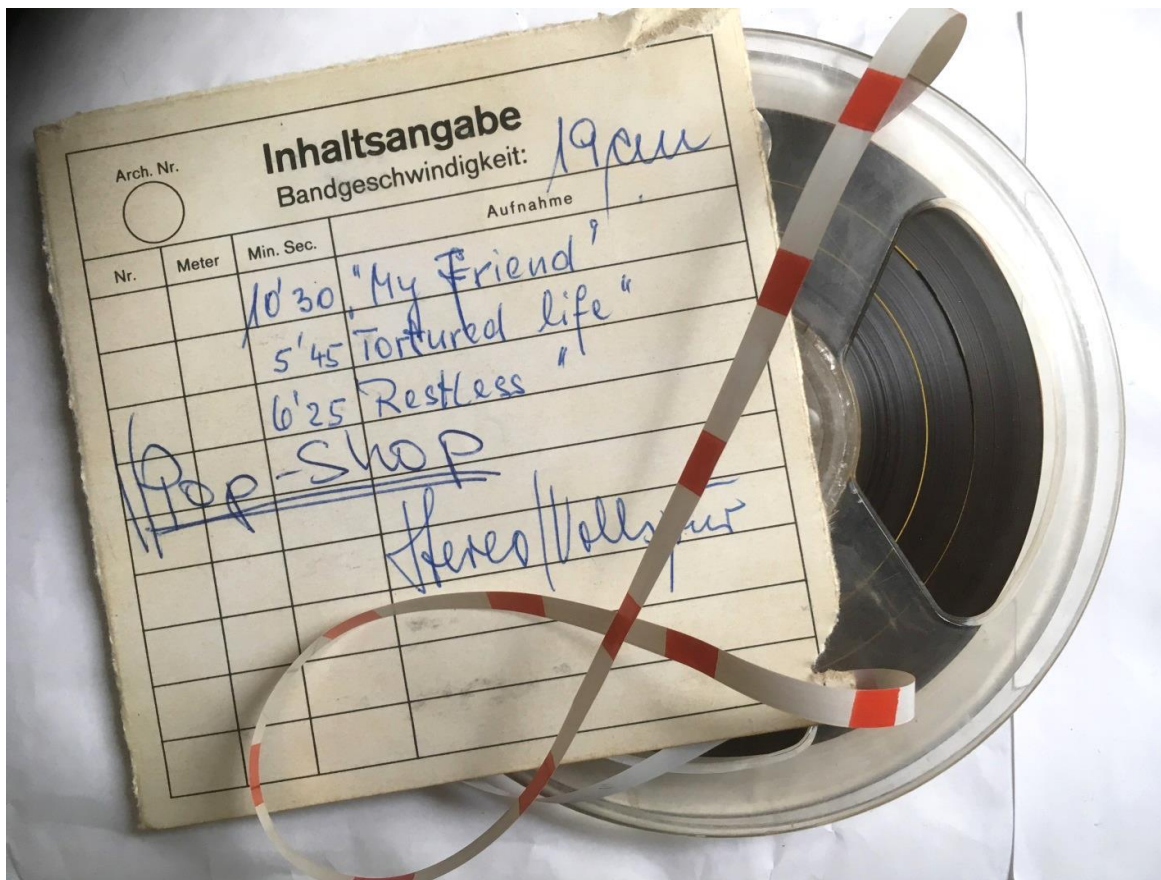 Inhaltsangabe
Arch. Nr.
Bandgeschwindigkeit: 19 cm
Nr. Meter Min. Sec. Aufnahme
10'30 "My Friend"
5'45 "Tortured life"
6'25 Restless "
Pop-Shop
Stereo/Vollspur